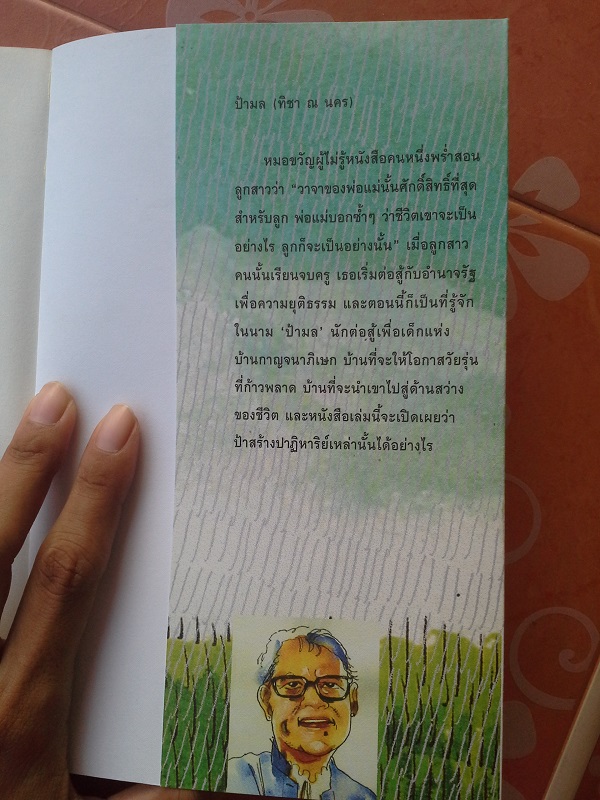 ป้ามล (ทิชา ณ นคร)
หมอขวัญผู้ไม่รู้หนังสือคนหนึ่งพร่ำสอน
ลูกสาวว่า “วาจาของพ่อแม่นั้นศักดิ์สิทธิ์ที่สุด
สำหรับลูก พ่อแม่บอกซ้ำๆ ว่าชีวิตเขาจะเป็น
อย่างไร ลูกก็จะเป็นอย่างนั้น” เมื่อลูกสาว
คนนั้นเรียนจบครู เธอเริ่มต่อสู้กับอำนาจรัฐ
เพื่อความยุติธรรม และตอนนี้ก็เป็นที่รู้จัก
ในนาม ‘ป้ามล’ นักต่อสู้เพื่อเด็กแห่ง
บ้านกาญจนาภิเษก บ้านที่จะให้โอกาสวัยรุ่น
ที่ก้าวพลาด บ้านที่จะนำเขาไปสู่ด้านสว่าง
ของชีวิต และหนังสือเล่มนี้จะเปิดเผยว่า
ป้าสร้างปาฏิหาริย์เหล่านั้นได้อย่างไร